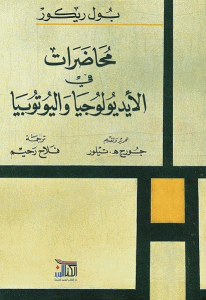 بـول ريـكـور
مُحَاضَرات
في
الأيديولوجيا واليوتوبيا
تحرير وتقديم
جـورج هـ. تـيلور
ترجمة
فلاح رحيم